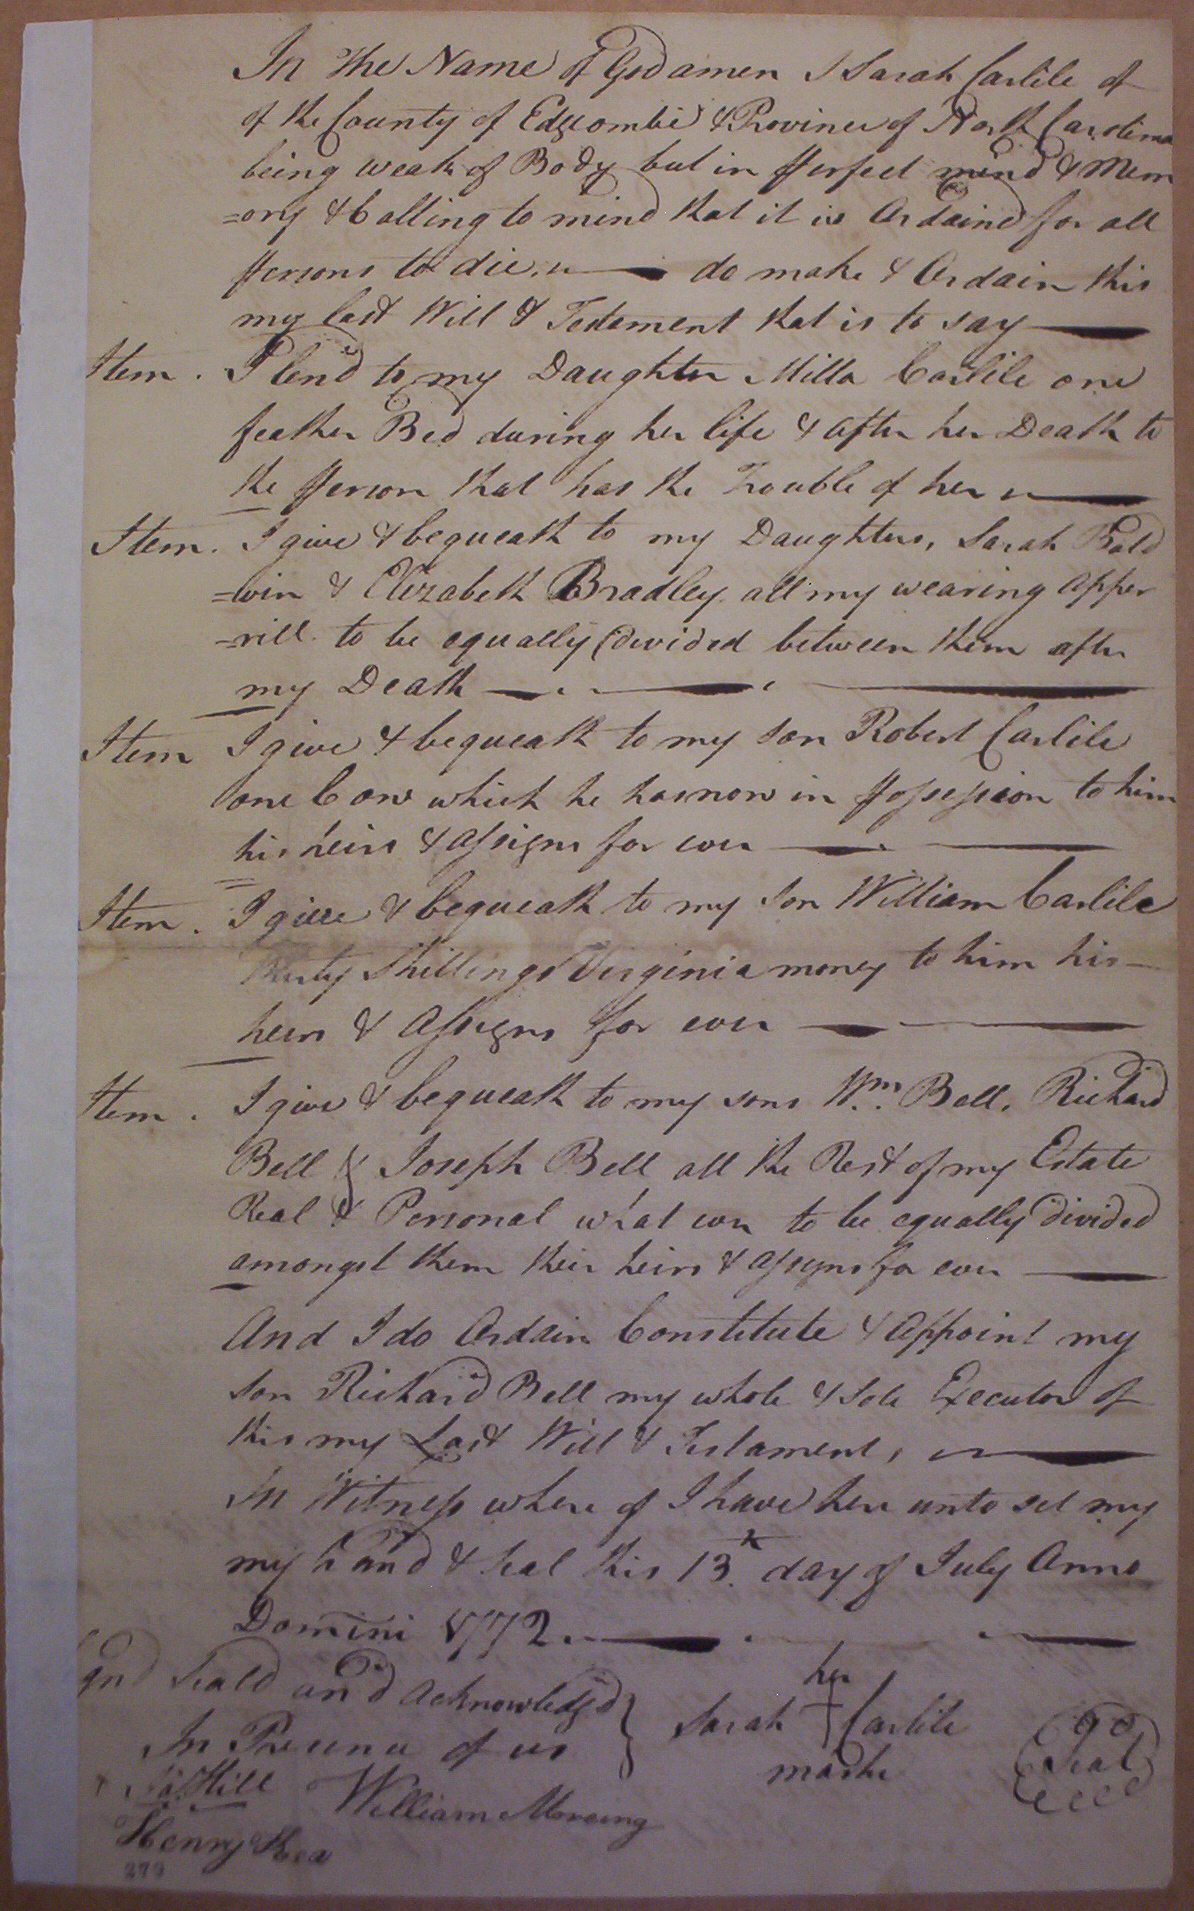 In the Name of God amen I Sarah Carlile of
of the County of Edgcombe & Province of North Carolina
being weak of Body but in perfect mind & Mem
=ory & Calling to mind that it is Ordained for all
persons to die, do make & Ordain this
my last Will & Testament that is to say
Item. I lend to my Daughter Milla Carlile one
feather Bed during her life & after her Death to
the person that has the Trouble of her
Item. I give & bequeath to my Daughters, Sarah Bald
=win & Elizabeth Bradley all my wearing apper
=rill to be equally divided between them after
my Death
Item I give & bequeath to my son Robert Carlile
one Cow which he has now in possession to him
his heirs & assigns for ever
Item. I give & bequeath to my son William Carlile
Shillings Virginia money to him his
heirs & assigns for ever
Item. I give & bequeath to my sons Wm. Bell, Richard
Bell & Joseph Bell all the Rest of my Estate
Real & Personal what ever to be equally divided
amongst them their heirs & assigns for ever
And I do Ordain Constitute & appoint my
son Richard Bell my whole & sole Executor of
this my Last Will & Testament,
In Witness where of I have here unto set my
my hand & seal this 13th day of July Anno
Domini 1772.
Seald and acknowledgd
In Presence of us
her
Sarah + Carlile
marke
Seal
Hill
William Moreing
Henry
279